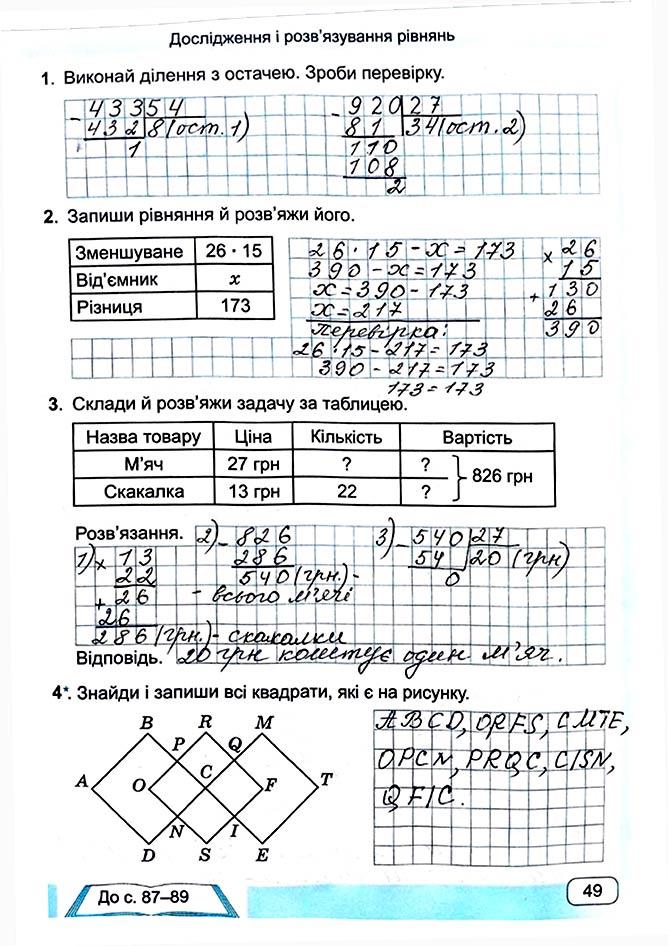 Дослідження і розв'язування рівнянь
1. Виконай ділення з остачею. Зроби перевірку.
- 433 54
432 8 (ост. 1)
1
- 920 27
81 34 (ост. 2)
110
108
2
2. Запиши рівняння й розв'яжи його.
Зменшуване 26 · 15
Від'ємник x
Різниця 173
26 · 15 - x = 173
390 - x = 173
x = 390 - 173
x = 217
Перевірка:
26 · 15 - 217 = 173
390 - 217 = 173
173 = 173
x 26
15
+ 130
26
390
3. Склади й розв'яжи задачу за таблицею.
Назва товару Ціна Кількість Вартість
М'яч 27 грн ? ? } 826 грн
Скакалка 13 грн 22 ?
Розв'язання.
1) x 13
22
+ 26
26
286 (грн.) - скакалки
2) - 826
286
540 (грн.) -
- всього м'ячі
3) - 540 27
54 20 (грн)
0
Відповідь. 20 грн коштує один м'яч.
4*. Знайди і запиши всі квадрати, які є на рисунку.
B R M
P Q
A O C F T
N I
D S E
ABCD, ORFS, CMTE,
OPCN, PRQC, CISN,
QFIC.
До с. 87–89
49